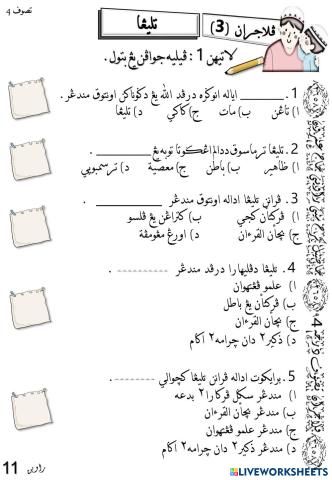 تصوف 4
ڤلاجرن (3)
تليڠا
لاتيهن 1 : ڤيليه جواڤن يڠ بتول.
1. ________ اياله انوݢره درڤد الله يڠ دݢوناكن اونتوق مندڠر.
ا) تاڠن ب) مات ج) كاكي د) تليڠا
2. تليڠا ترماسوق دالم اڠݢوتا توبه يڠ ________.
ا) ظاهير ب) باطن ج) معصية د) ترسمبوڽي
3. ڤرانن تليڠا اداله اونتوق مندڠر ________ .
ا) ڤركاتأن كجي ب) كتراڠن يڠ ڤلسو
ج) بچأن القرءان د) اورڠ مڠومڤة
4. تليڠا دڤليهارا درڤد مندڠر --------
ا) علمو ڤڠتهوان
ب) ڤركاتأن يڠ باطل
ج) بچأن القرءان
د) ذكير٢ دان چرامه٢ اݢام
5. بريكوت اداله ڤرانن تليڠا كچوالي --------
ا) مندڠر سݢل ڤركارا٢ بدعه
ب) مندڠر بچأن القرءان
ج) مندڠر علمو ڤڠتهوان
د) مندڠر ذكير٢ دان چرامه٢ اݢام
11
LIVEWORKSHEETS